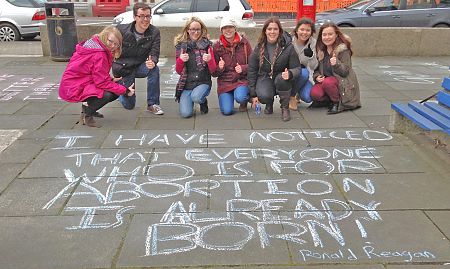 I HAVE NOTICED
THAT EVERYONE
WHO IS FOR
ABORTION
IS ALREADY
BORN!
Ronald Reagan